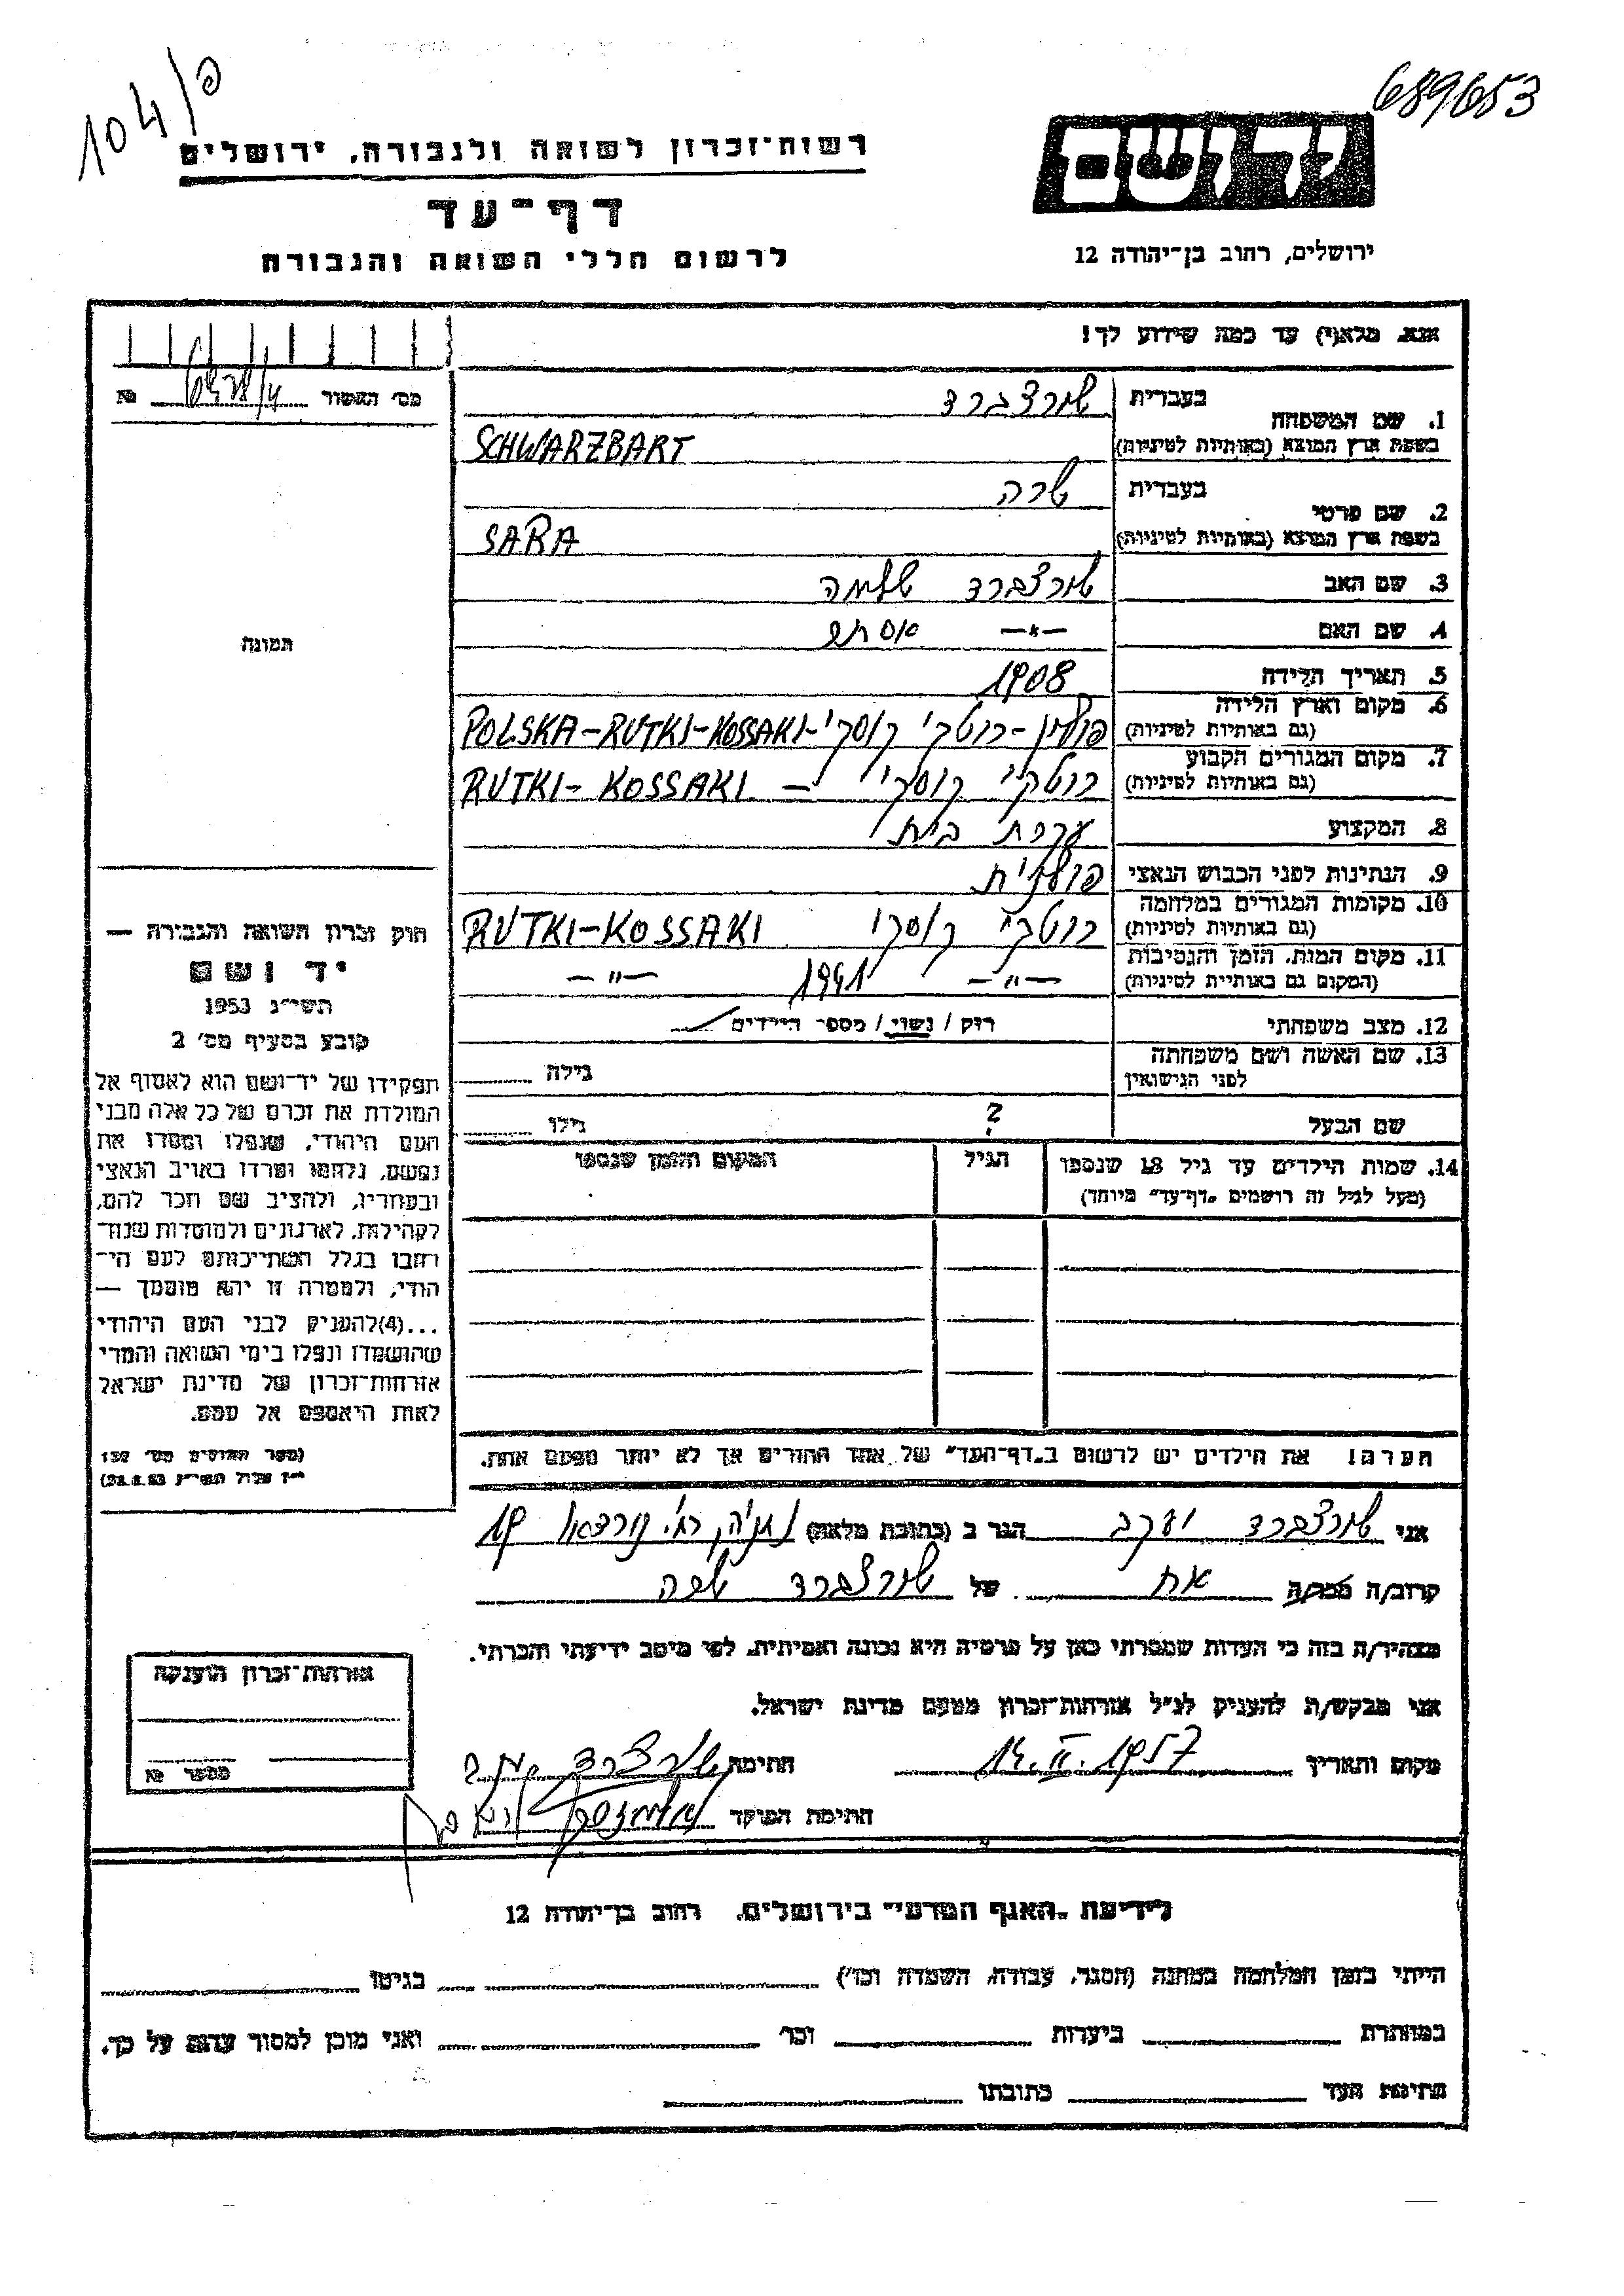 104/פ
689653
רשות־זכרון לשואה ולגבורה, ירושלים
יד ושם
דף־עד
לרשום חללי השואה והגבורה
ירושלים, רחוב בן־יהודה 12
אנא, מלא(י) עד כמה שידוע לך!
מס' האשור №
1. שם המשפחה
בעברית שורצברד
בשפת ארץ המוצא (באותיות לטיניות) SCHWARZBART
2. שם פרטי
בעברית שרה
בשפת ארץ המוצא (באותיות לטיניות) SARA
3. שם האב שורצברד שלמה
4. שם האם —״— אסתר
5. תאריך הלידה 1908
6. מקום וארץ הלידה (גם באותיות לטיניות) פולין - רוטקי קוסקי - POLSKA-RUTKI-KOSSAKI
7. מקום המגורים הקבוע (גם באותיות לטיניות) רוטקי קוסקי — RUTKI-KOSSAKI
8. המקצוע עקרת בית
9. הנתינות לפני הכבוש הנאצי פולנית
10. מקומות המגורים במלחמה (גם באותיות לטיניות) רוטקי קוסקי RUTKI-KOSSAKI
11. מקום המות, הזמן והנסיבות (המקום גם באותיות לטיניות) —״— 1941 —״—
12. מצב משפחתי רוק / נשוי / מספר הילדים
13. שם האשה ושם משפחתה לפני הנישואין גילה
שם הבעל ? גילו
14. שמות הילדים עד גיל 18 שנספו (מעל לגיל זה רושמים „דף־עד" מיוחד) הגיל המקום והזמן שנספו
הערה! את הילדים יש לרשום ב„דף־העד" של אחד ההורים אך לא יותר מפעם אחת.
תמונה
חוק זכרון השואה והגבורה —
יד ושם
תשי״ג 1953
קובע בסעיף מס' 2
תפקידו של יד־ושם הוא לאסוף אל
המולדת את זכרם של כל אלה מבני
העם היהודי, שנפלו ומסרו את
נפשם, נלחמו ומרדו באויב הנאצי
ובעוזריו, ולהציב שם וזכר להם,
לקהילות, לארגונים ולמוסדות שנח־
רבו בגלל השתייכותם לעם הי־
הודי, ולמטרה זו יהא מוסמך —
...(4)להעניק לבני העם היהודי
שהושמדו ונפלו בימי השואה והמרי
אזרחות־זכרון של מדינת ישראל
לאות היאספם אל עמם.
(ספר החוקים מס' 132
י״ז אלול תשי״ג 28.8.53)
אני שורצברד יעקב הגר ב (כתובת מלאה) נתניה, רח' נורדאו 19
קרוב/ה מכר/ה אח של שורצברד שרה
מצהיר/ה בזה כי העדות שמסרתי כאן על פרטיה היא נכונה ואמיתית, לפי מיטב ידיעתי והכרתי.
אני מבקש/ת להעניק לנ״ל אזרחות־זכרון מטעם מדינת ישראל.
מקום ותאריך 14.II.1957 חתימה
חתימת הפוקד
אזרחות־זכרון הוענקה
מספר №
לידיעת „האגף המדעי" בירושלים, רחוב בן־יהודה 12
הייתי בזמן המלחמה במחנה (הסגר, עבודה, השמדה וכו') בגיטו
במחתרת ביערות וכו' ואני מוכן למסור עדות על כך.
חתימת העד כתובתו